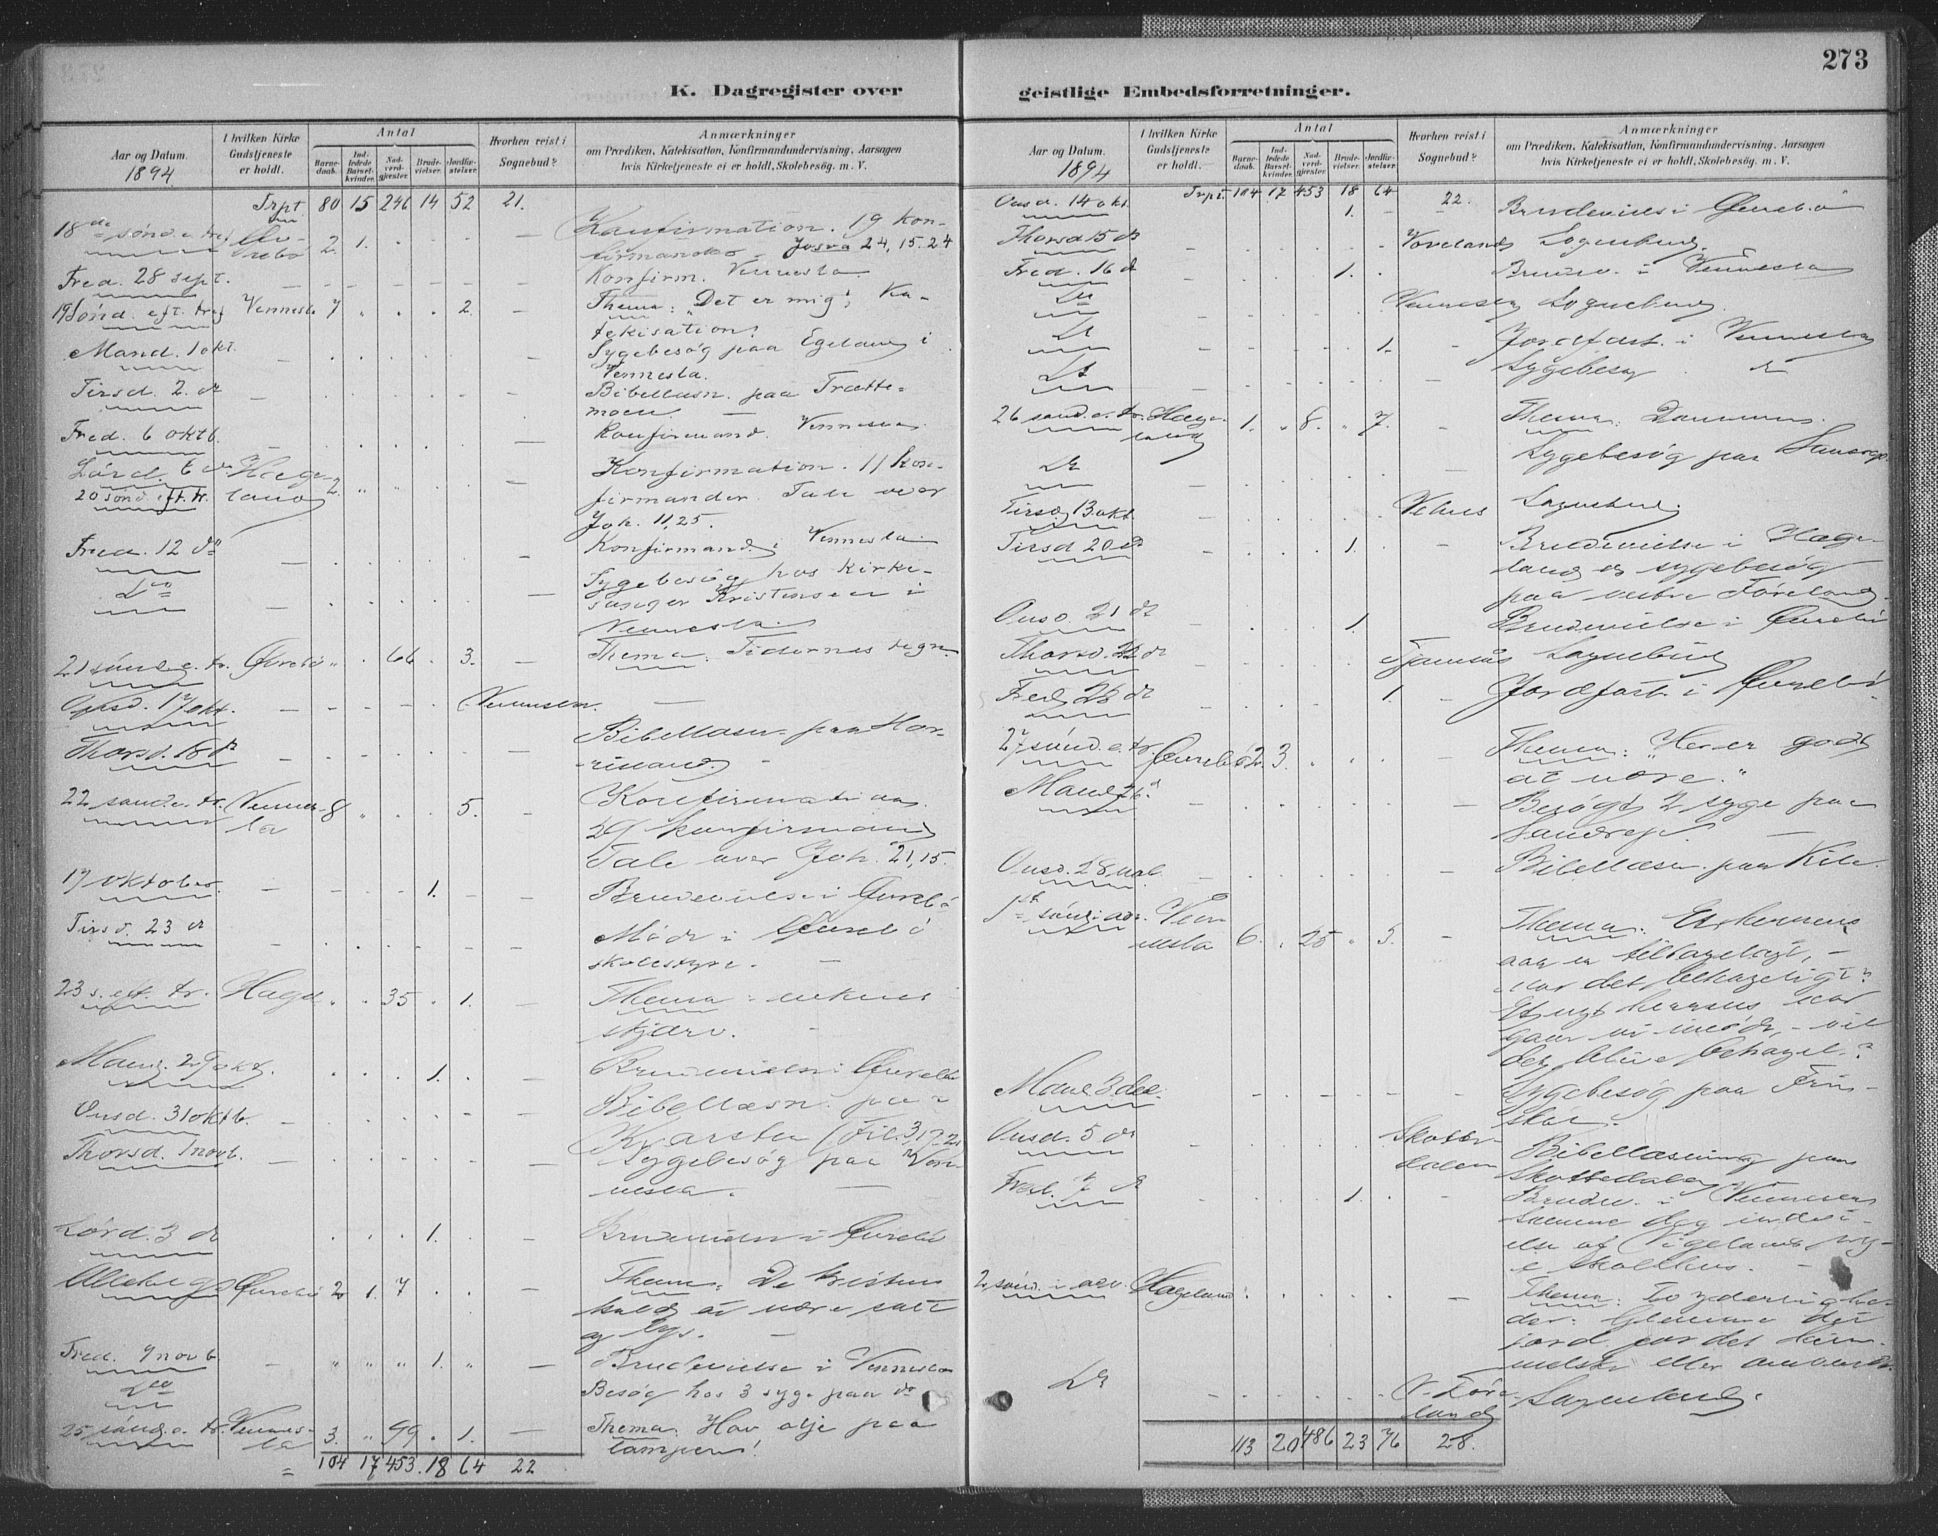 K. Dagregister over
Aar og Datum.
1894
I hvilken Kirke Gudstjeneste er holdt.
Antal
Barne-daab. Ind-ledede Barsel-kvinder. Nad-verd-gjæster. Brude-vielser. Jordfæ-stelser.
Hvorhen reist i Sognebud?
Anmærkninger
om Prædiken, Katekisation, Konfirmandundervisning, Aarsagen
hvis Kirketjeneste ei er holdt, Skolebesøg. m. V.
Trpt. 80 15 246 14 52 21.
18de sønd. e. tref. Øvrebø 2. 1. Konfirmation. 19 kon-
firmander. Josva 24, 15. 24
Fred. 28 sept. Konfirm. Vennesla
19 sønd. eft. tref. Vennesla 7 2. Thema: "Det er mig"; Ka-
tekisation.
Mand. 1 okt. Sygebesøg paa Egeland i
Vennesla.
Tirsd. 2. do Bibellæsn. paa Trætte-
moen.
Fred. 6 oktb. Konfirmand. Vennesla
Lørd. 6 do Hæge- Konfirmation. 11 kon-
20 sønd. eft. tr. land 2. firmander. Tale over
Joh. 11, 25.
Fred. 12 do Konfirmand. i Vennesla
Do Sygebesøg hos Kirke-
sanger Kristensen i
Vennesla
21 sønd. e. tr. Øvrebø 66 3. Thema: Tidernes tegn
Onsd. 17 okt. Vennesla.
Thorsd. 18 do Bibellæsn. paa
22 sønd. e. tr. Vennes- 8 5. Konfirmation.
la 29 konfirmand.
Tale over Joh. 21, 15.
17 oktober. 1. Brudevielse i Øvrebø
Tirsd. 23 do Møde i Øvrebø
skolestyre.
23 s. eft. tr. Hægel. 35 1. Thema: enkens
skjærv.
Mand. 29 okt. 1. Brudevielse i Øvrebø
Onsd. 31 oktb. Bibellæsn. paa
(Fil. 3, 17-21
Thorsd. 1 novb. Sygebesøg paa Ven-
nesla.
Lørd. 3 do 1. Brudevielse i Øvrebø
Allehelg. Øvrebø 2 1. 7 Thema: De kristnes
kald at være salt
og lys.
Fred. 9 novb 1. Brudevielse i Vennesla
Do Besøg hos 3 syge paa do
25 sønd. e. tr. Vennes-
la 3. 99 1. Thema: Hav olje paa
lampen!
104 17 453. 18 64 22
273
geistlige Embedsforretninger.
Aar og Datum.
1894
I hvilken Kirke Gudstjeneste er holdt.
Antal
Barne-daab. Ind-ledede Barsel-kvinder. Nad-verd-gjæster. Brude-vielser. Jordfæ-stelser.
Hvorhen reist i Sognebud?
Anmærkninger
om Prædiken, Katekisation, Konfirmandundervisning, Aarsagen
hvis Kirketjeneste ei er holdt, Skolebesøg. m. V.
Trpt. 104 17 453 18 64 22.
Onsd. 14 okt. 1. Brudevielse i Øvrebø
Thorsd 15 do Sognebud.
Fred. 16 d 1. Brudev. i Vennesla
Do Vennesla Sognebud.
Do 1. Jordfæst. i Vennesla
Do Sygebesøg do
26 sønd. e. tr. Hæge-
land 1. 8. 7. Thema: Dommen.
Do Sygebesøg paa
Tirsd. 13. okt. Sognebud.
Tirsd 20 do 1. Brudevielse i Hæge-
land og sygebesøg
paa
Onsd. 21 do 1. Brudevielse i Øvrebø
Thorsd. 22 do Sognebud
Fred. 23 do 1. Jordfæst. i Øvrebø
27 sønd. e. tr. Øvrebø 2. 3. Thema: "Her er godt
at være."
Mand. 26 d Besøgt 2 syge paa
Onsd. 28 nov. Bibellæsn. paa
1st sønd. i adv. Ven-
nesla 6. 25 5. Thema: Et Herrens
aar er tilbagelagt, -
var det behageligt?
Et nyt Herrens aar
gaar vi imøde, - vil
det blive behagel.?
Mand. 3 dec. Sygebesøg paa
Onsd. 5 do Skotte-
dalen Bibellæsning paa
Skottedalen
Fred. 7 do 1. Brudev. i Vennesla
Samme dag indvi-
else af Vigelands ny-
e skolehus.
2 sønd. i adv. Hægeland Thema: To yderlighe-
der: Glemme det
jord. for det him-
melske eller omvendt.
Do Sognebud.
113 20 486 23 76 28.